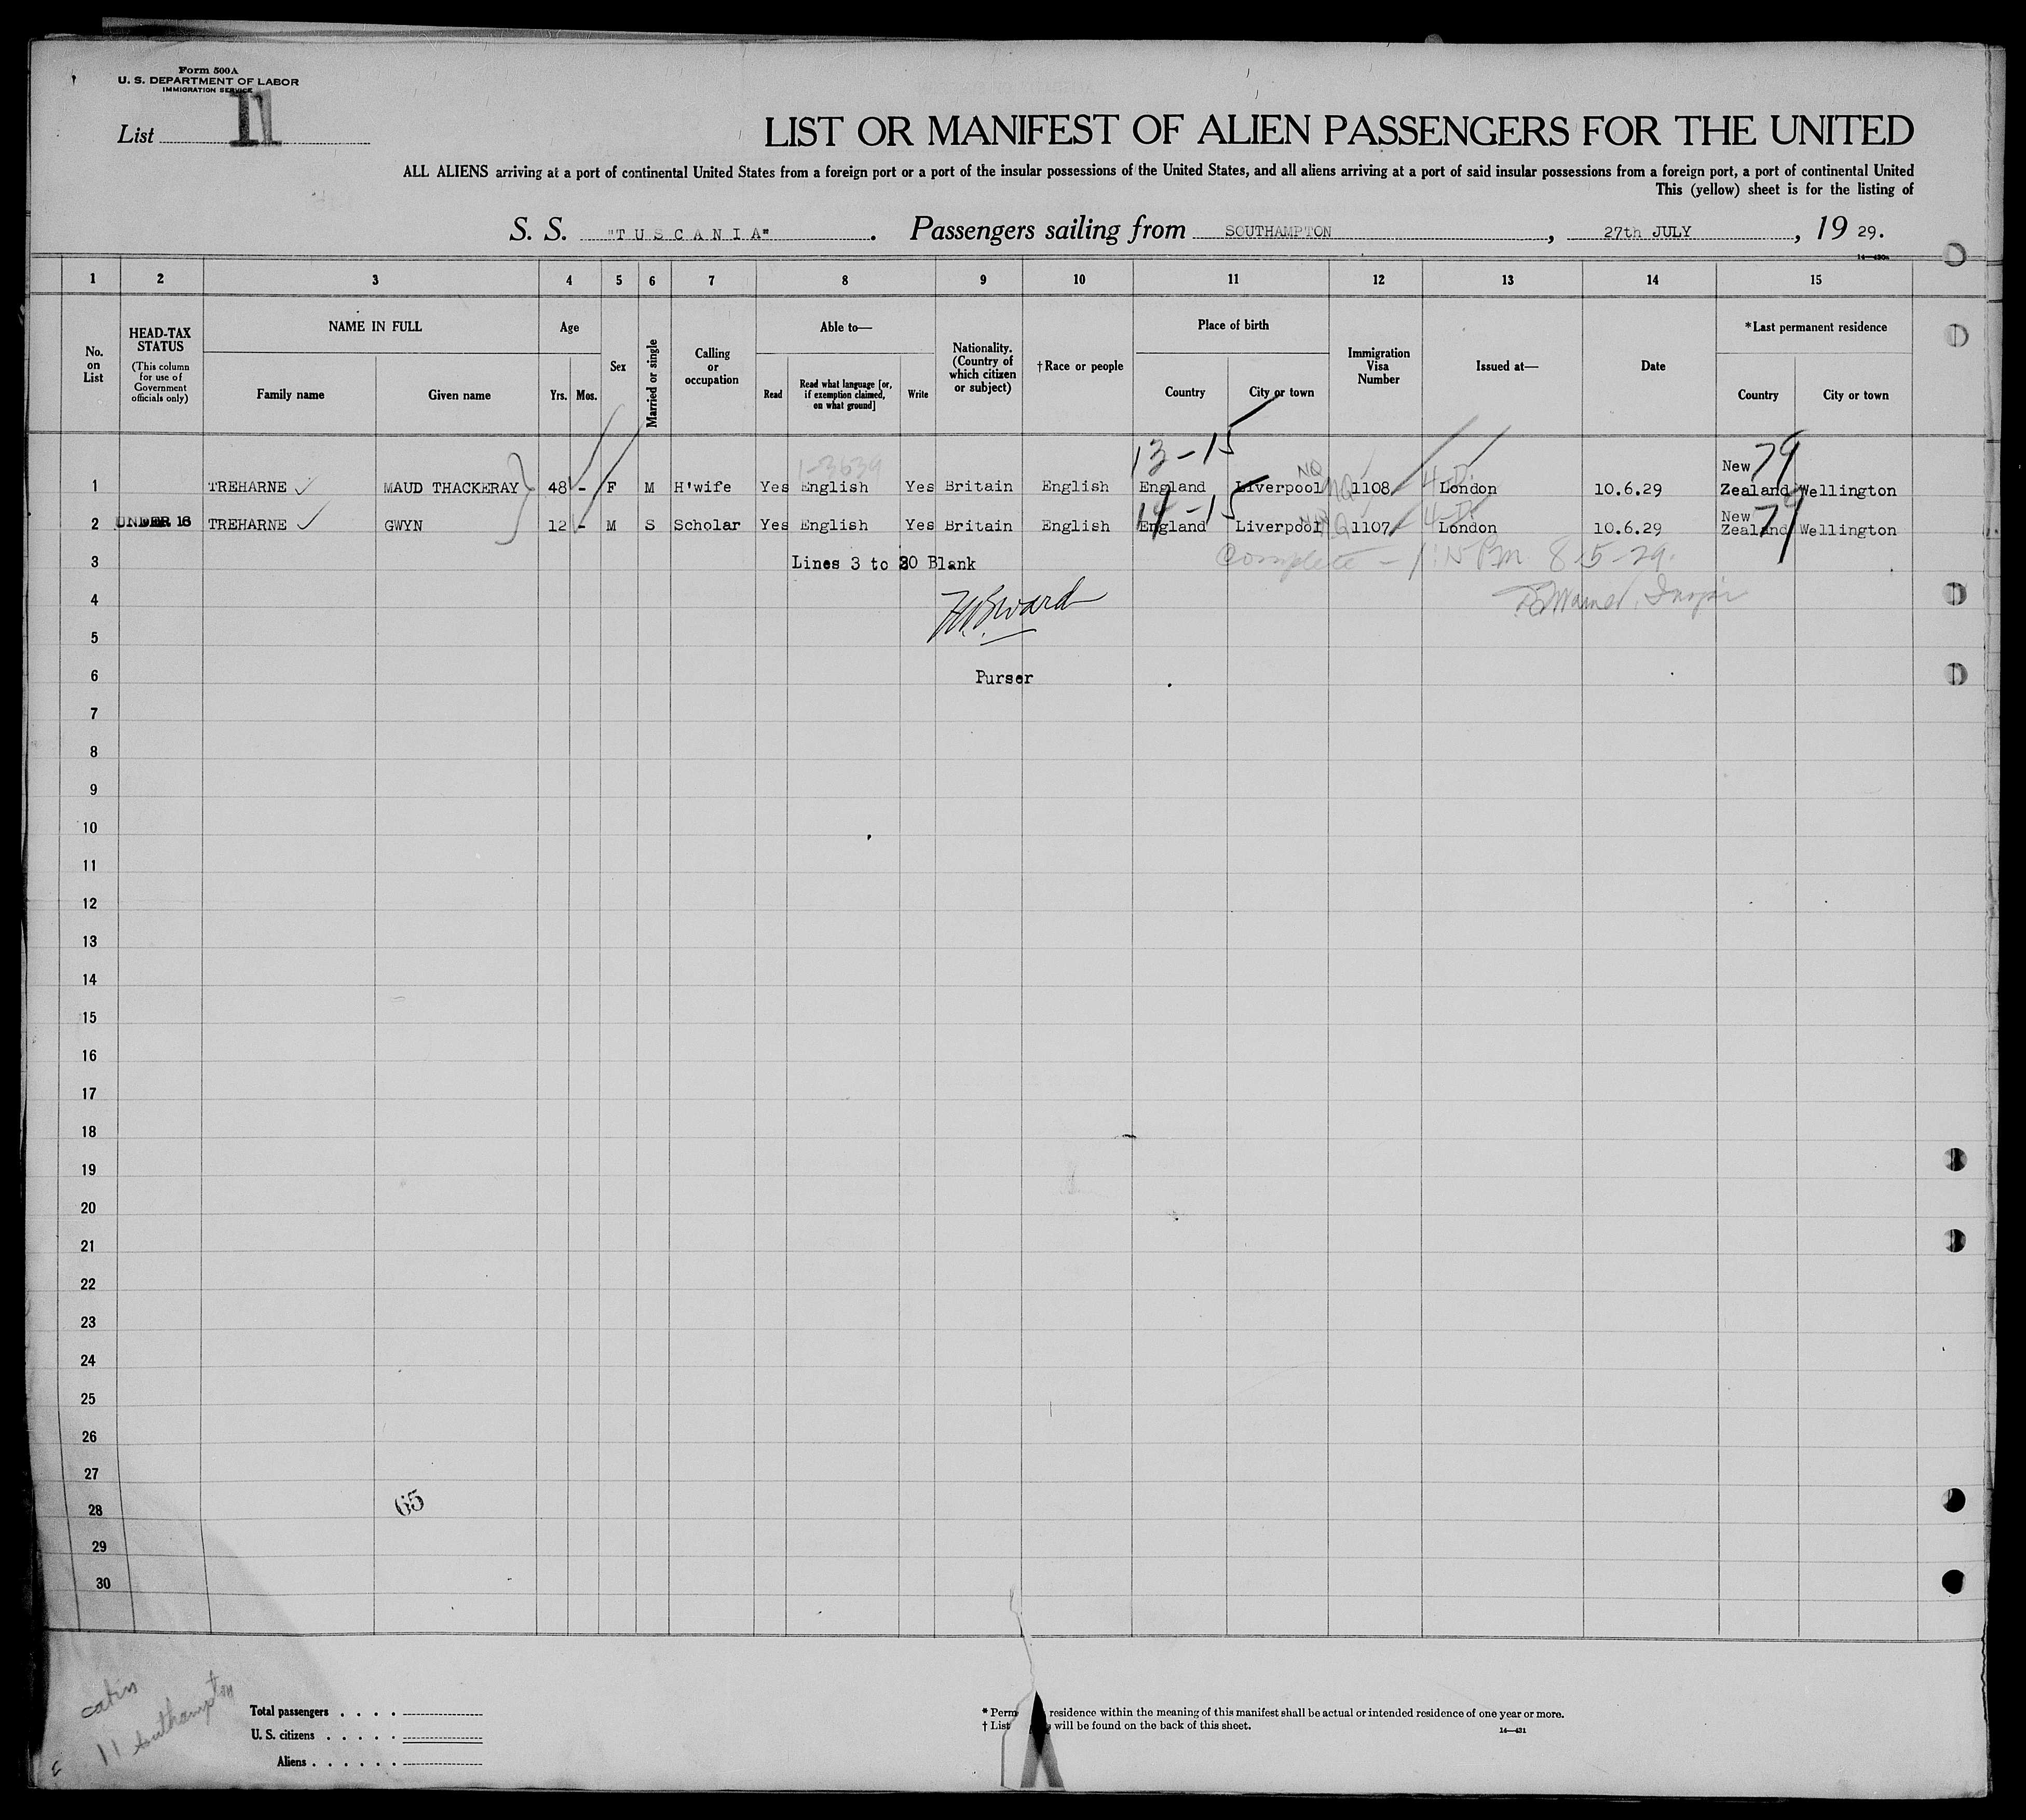 Form 500A
U. S. DEPARTMENT OF LABOR
IMMIGRATION SERVICE
List 11
LIST OR MANIFEST OF ALIEN PASSENGERS FOR THE UNITED
ALL ALIENS arriving at a port of continental United States from a foreign port or a port of the insular possessions of the United States, and all aliens arriving at a port of said insular possessions from a foreign port, a port of continental United
This (yellow) sheet is for the listing of
S. S. "TUSCANIA". Passengers sailing from SOUTHAMPTON, 27th JULY, 19 29.
14—430a
1 2 3 4 5 6 7 8 9 10 11 12 13 14 15
No. on List
HEAD-TAX STATUS
(This column for use of Government officials only)
NAME IN FULL
Family name Given name
Age
Yrs. Mos.
Sex
Married or single
Calling or occupation
Able to—
Read
Read what language [or, if exemption claimed, on what ground]
Write
Nationality. (Country of which citizen or subject)
†Race or people
Place of birth
Country City or town
Immigration Visa Number
Issued at—
Date
*Last permanent residence
Country City or town
1-3639
13-15
NQ
79
1 TREHARNE MAUD THACKERAY 48 - F M H'wife Yes English Yes Britain English England Liverpool NQ 1108 London 10.6.29 New Zealand Wellington
14-15
79
2 UNDER 16 TREHARNE GWYN 12 - M S Scholar Yes English Yes Britain English England Liverpool 1107 London 10.6.29 New Zealand Wellington
3 Lines 3 to 30 Blank Complete - 1:15 PM 8-5-29.
4
5
6 Purser
7
8
9
10
11
12
13
14
15
16
17
18
19
20
21
22
23
24
25
26
27
28 65
29
30
cabin
11 Southampton
Total passengers . . . .
U. S. citizens . . . . .
Aliens . . . . . .
* Perm residence within the meaning of this manifest shall be actual or intended residence of one year or more.
† List will be found on the back of this sheet.
14—431